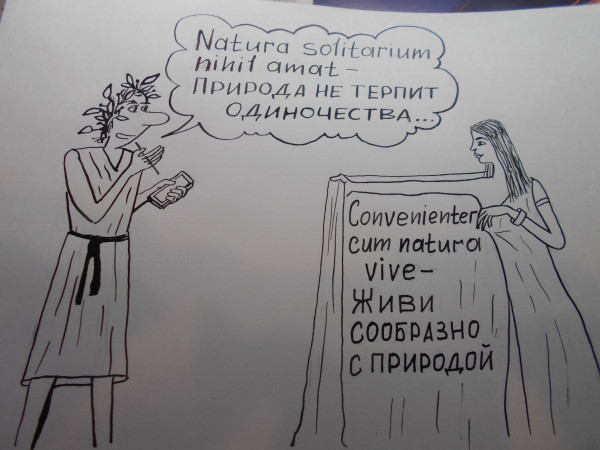 Natura solitarium
nihil amat –
ПРИРОДА НЕ ТЕРПИТ
ОДИНОЧЕСТВА...
Convenienter
cum natura
vive –
ЖИВИ
СООБРАЗНО
С ПРИРОДОЙ